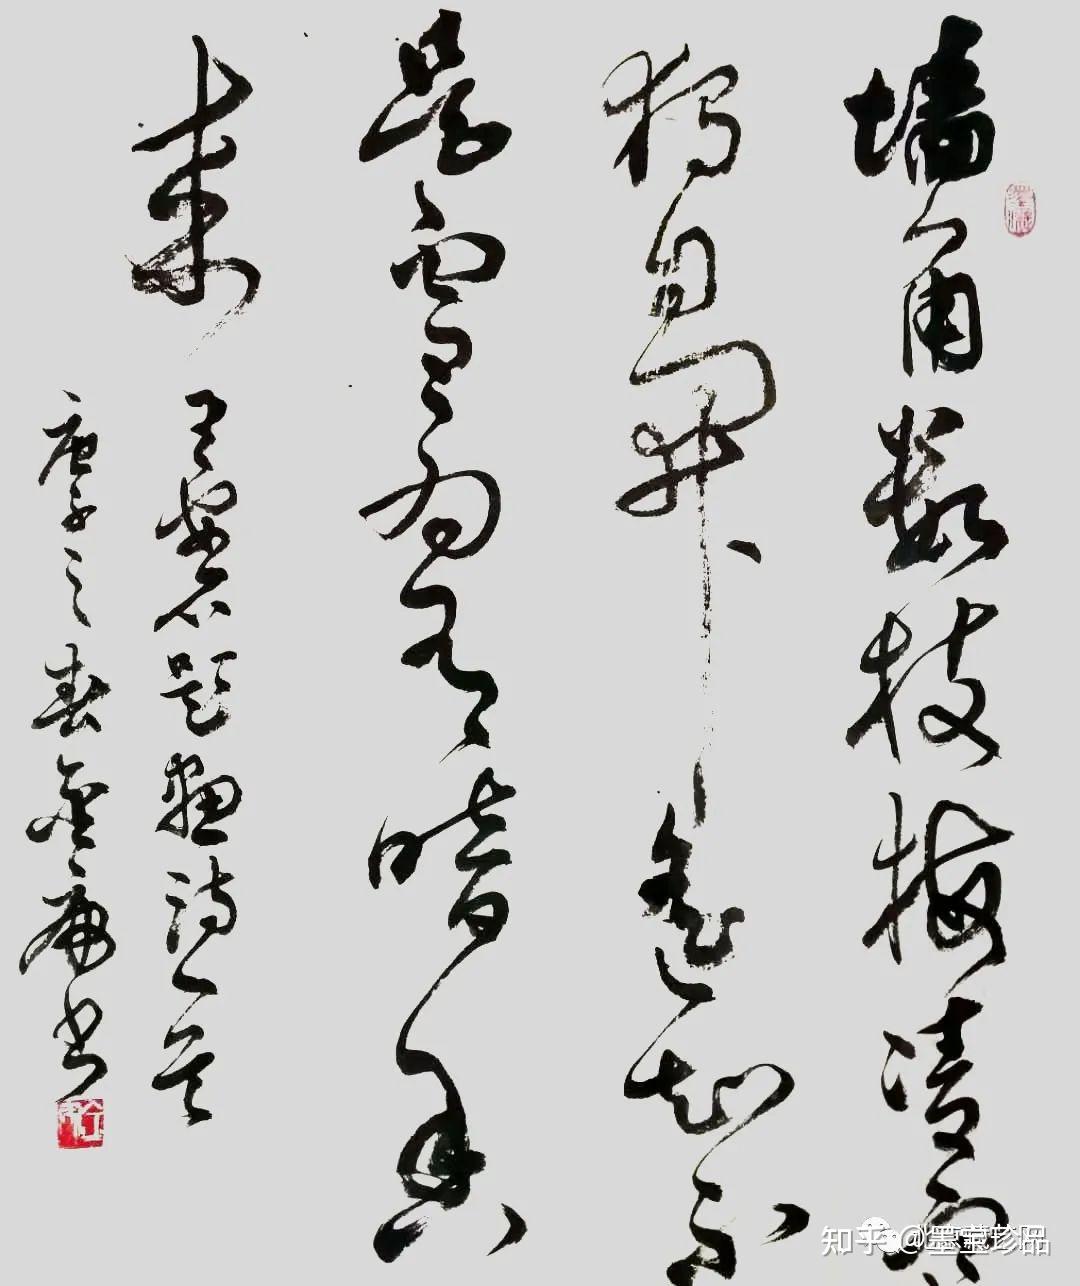 墙角数枝梅凌寒
独自开遥知不
是雪为有暗香
来
王安石题诗一首
庚子之春书
知乎 @珍品